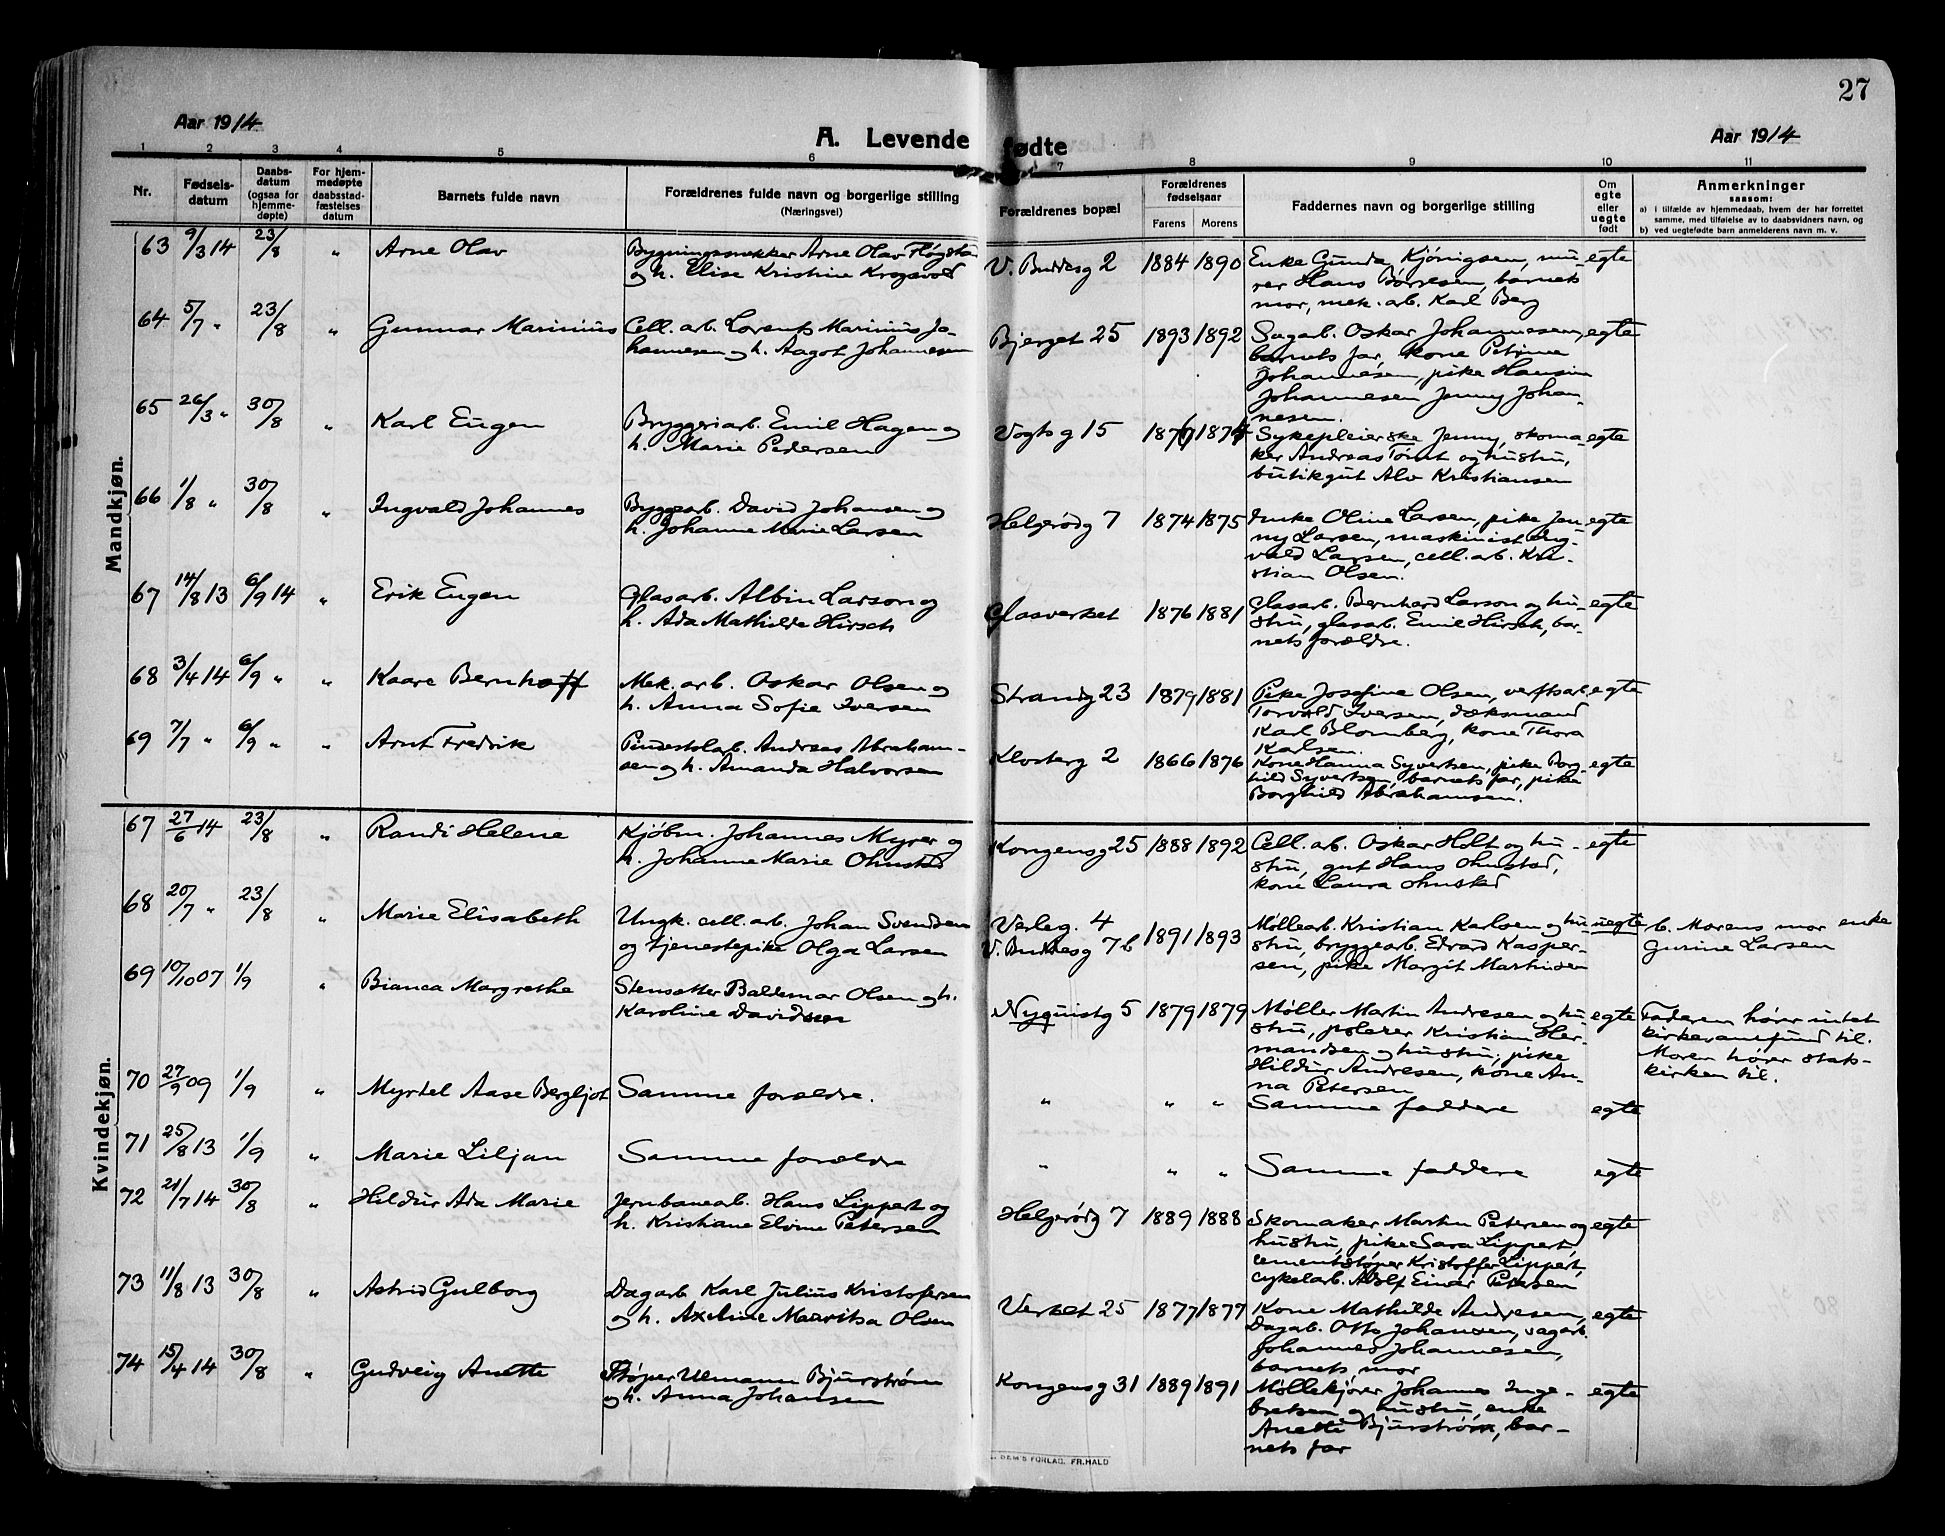 27
Aar 1914
A. Levende fødte
Aar 1914
1 2 3 4 5 6 7 8 9 10 11
Nr.
Fødsels-
datum
Daabs-
datum
(ogsaa for
hjemme-
døpte)
For hjem-
medøpte
daabsstad-
fæstelses
datum
Barnets fulde navn
Forældrenes fulde navn og borgerlige stilling
(Næringsvei)
Forældrenes bopæl
Forældrenes
fødselsaar
Farens Morens
Faddernes navn og borgerlige stilling
Om
egte
eller
uegte
født
Anmerkninger
saasom:
a) i tilfælde av hjemmedaab, hvem der har forrettet
samme, med tilføielse av to daabsvidners navn, og
b) ved uegtefødte barn anmelderens navn m. v.
Mandkjøn.
63 9/3 14 23/8 " Arne Olav
Bygningssnekker Arne Olav
og h. Elise Kristine Krogsvold
V. Buddesg 2 1884 1890
Enke Gunda Kjønigsen, mu-
rer Hans Børresen, barnets
mor, mek. arb. Karl Berg
egte
64 5/7 " 23/8 " Gunnar Marinius
Cell. arb. Lorents Marinius Jo-
hannesen og h. Aagot Johannesen
Bjerget 25 1893 1892
Sagarb. Oskar Johannesen,
barnets far, kone Petrine
Johannesen, pike Hansine
Johannesen Jenny Johan-
nesen.
egte
65 26/3 " 30/8 " Karl Eugen
Bryggeriarb. Emil Hagen og
h. Marie Pedersen
Vogtsg 15 1876 1874
Sykepleierske Jenny, skoma-
ker Andreas Tømt og hustru,
butikgut Alv Kristiansen
egte
66 1/8 " 30/8 " Ingvald Johannes
Byggearb. David Johansen og
h. Johanne Marie Larsen
Helgerødg 7 1874 1875
Enke Oline Larsen, pike Jen-
ny Larsen, maskinist Ing-
vald Larsen, cell. arb. Kri-
stian Olsen.
egte
67 14/8 13 6/9 14 " Erik Eugen
Glasarb. Albin Larson og
h. Ada Mathilde Hirsch
Glasverket 1876 1881
Glasarb. Bernhard Larson og hu-
stru, glasarb. Emil Hirsch, bar-
nets forældre.
egte
68 3/4 14 6/9 " " Kaare Bernhoff
Mek. arb. Oskar Olsen og
h. Anna Sofie Iversen
Strandg 23 1879 1881
Pike Josefine Olsen, verftsarb.
Torvald Iversen, dæksmand
Karl Blomberg, kone Thora
Karlsen.
egte
69 7/7 " 6/9 " " Arnt Fredrik
Pindestolarb. Andreas Abraham-
sen og h. Amanda Halvorsen
Klosterg 2 1866 1876
Kone Hanna Syvertsen, pike Borg-
hild Syvertsen, barnets far, pike
Borghild Abrahamsen.
egte
Kvindekjøn.
67 27/6 14 23/8 " Randi Helene
Kjøbm. Johannes Myrer og
h. Johanne Marie Ohnstad
Kongensg 25 1888 1892
Cell. arb. Oskar Holt og hu-
stru, gut Hans Ohnstad,
kone Laura Ohnstad
egte
68 20/7 " 23/8 " Marie Elisabeth
Ungk. cell. arb. Johan Svendsen
og tjenestepike Olga Larsen
Verleg. 4
V. Buddesg 7b 1891 1893
Møllearb. Kristian Karlsen og hu-
stru, bryggearb. Edvard Kasper-
sen, pike Margit Martinsen
uegte
b. Morens mor enke
Gurine Larsen
69 10/10 07 1/9 " Bianca Margrethe
Stensætter Baldemar Olsen og h.
Karoline Davidsen
Nyquistg 5 1879 1879
Møller Martin Andresen og hu-
stru, polerer Kristian Her-
mandsen og hustru, pike
Hildur Andresen, kone An-
na Petersen
egte
Faderen hører intet
kirkesamfund til.
Moren hører stats-
kirken til.
70 27/9 09 1/9 " Myrtel Aase Bergljot
Samme forældre.
" " " Samme faddere egte
71 25/8 13 1/9 " Marie Liljan
Samme forældre
" " " Samme faddere egte
72 21/7 14 30/8 " Hildur Ada Marie
Jernbanearb. Hans Lippert og
h. Kristiane Elvine Petersen
Helgerødg 7 1889 1888
Skomaker Martin Petersen og
hustru, pike Sara Lippert,
cementstøper Kristoffer Lippert,
cykelarb. Adolf Einar Petersen
egte
73 11/8 13 30/8 " Astrid Gulborg
Dagarb Karl Julius Kristofersen
og h. Axeline Mauritsa Olsen
Verket 25 1877 1877
Kone Mathilde Andresen,
Dagarb. Otto Johansen, sagarb.
Johannes Johannesen,
barnets mor
egte
74 15/4 14 30/8 " Gudveig Anette
Støper Uemann Bjurstrøm
og h. Anna Johansen
Kongensg 31 1889 1891
Møllekjører Johannes Inge-
bretsen og hustru, enke
Anette Bjurstrøm, bar-
nets far
egte
SEM'S FORLAG, FR.HALD